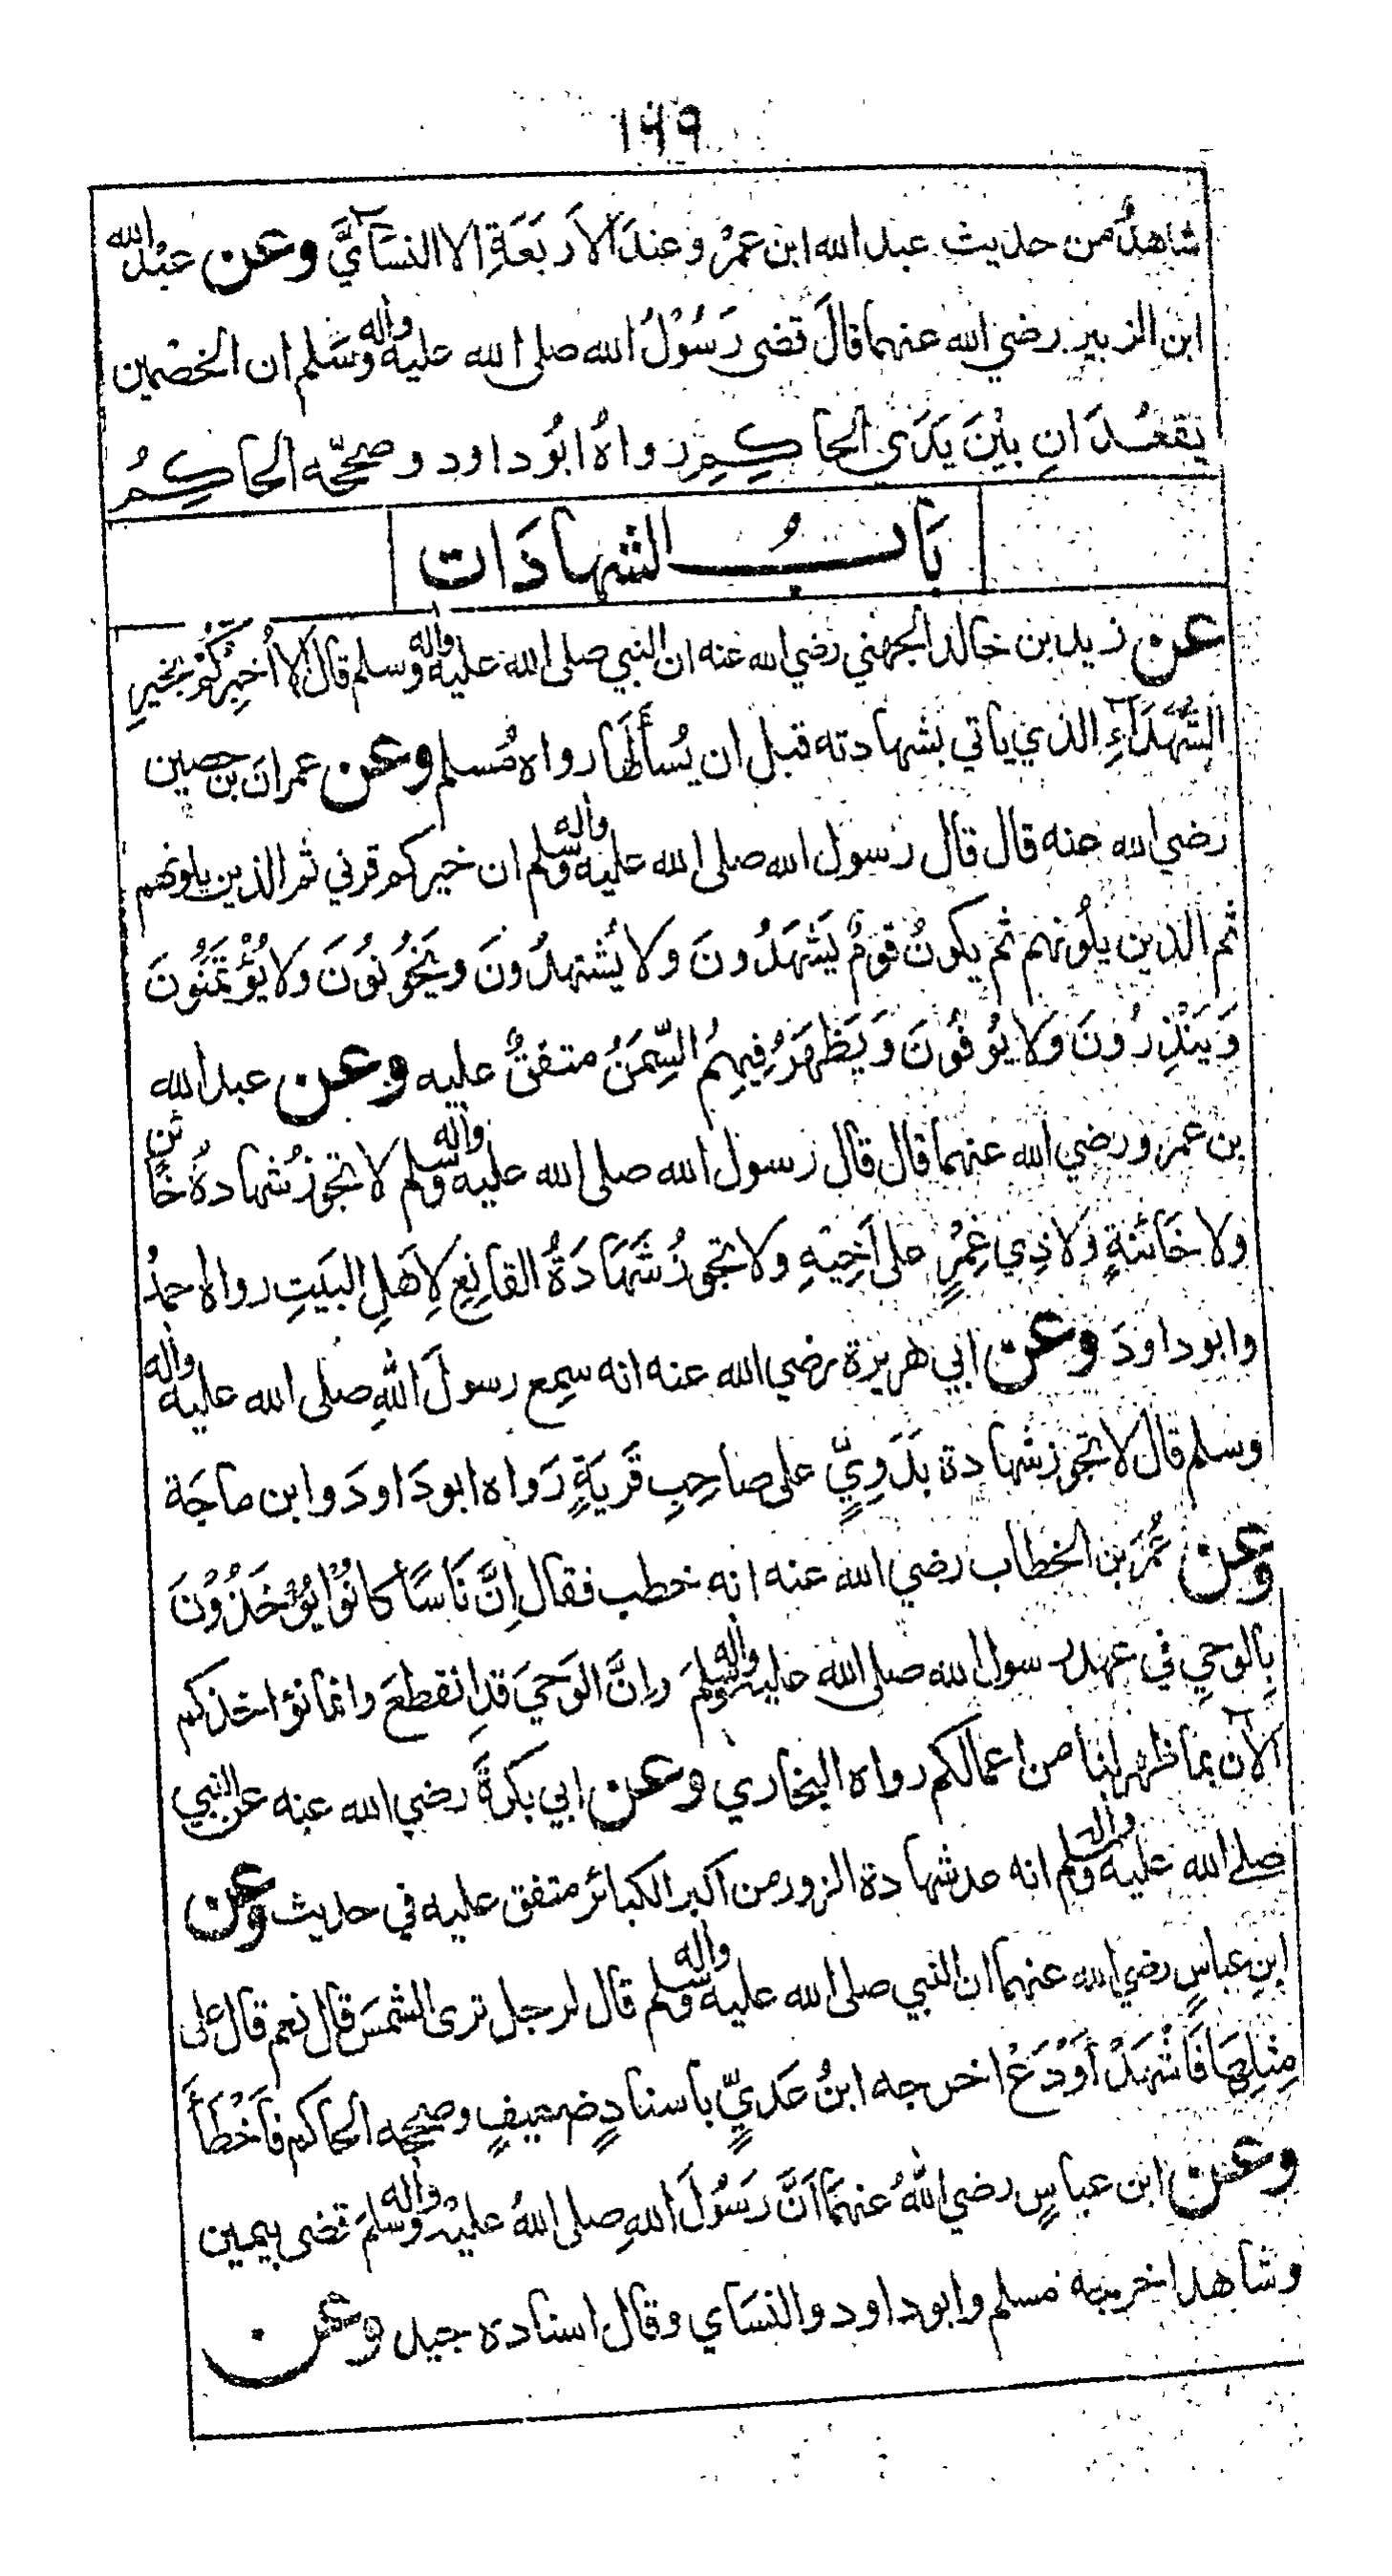 ١٦٩
شاهدٌ من حديث عبد الله ابن عمرْ وعندَ الاَربَعَةِ الا النسَآيَّ وعن عبْد الله
ابن الزبير رضي الله عنهما قالَ قضى رَسُوْلُ الله صلى الله عليه واله وسَلم ان الخصْمين
يَقعُدَانِ بيْنَ يَدَيِ الحاكِمِ رواهُ ابُوداود وصحّحه الحاكِمُ
بَابُ الشهادَات
عن زيد بن خالد الجهني رضي الله عنه ان النبي صلى الله عليه واله وسلم قال الا أُخبِركُمْ بخيرِ
الشُّهَدَآءِ الذي ياتي بشهادته قبل ان يُسأَلَها رواه مُسلم وعن عمرانَ بن حصين
رضي الله عنه قال قال رسول الله صلى الله عليه واله وسلم ان خيركم قرني ثم الذين يلونهم
ثم الذين يلُونهم ثم يكونُ قومٌ يَشْهَدُونَ ولا يُشتهدُونَ ويَخُونُونَ وَلا يُؤْتَمَنُونَ
وَيَنْذِرُونَ وَلا يُوفُونَ وَيَظهَرُ فِيهِمُ السِّمَنُ متفقٌ عليه وعن عبد الله
بن عمر ورضي الله عنهما قال قال رسول الله صلى الله عليه واله وسلم لا تجوزُ شهادةُ خائن
ولا خَائنةٍ وَلا ذِي غِمْرٍ على اَخِيْهِ ولا تجوزُ شَهَادَةُ القانِعِ لِاَهلِ البَيتِ رواه احمدُ
وابوداودَ وعن ابي هريرة رضي الله عنه انه سمِع رسولَ اللهِ صلى الله عليه واله
وسلم قال لا تجوز شهادة بَدَوِيٍّ على صاحِبِ قَريَةٍ رَواه ابودَاودَ وابن ماجَة
وعن عُمَرَ بن الخطاب رضي الله عنه انه خطب فقال اِنَّ نَاسًا كانُوْا يُؤْخَذُوْنَ
بِالوحِيِ في عهد رسول الله صلى الله عليه واله وسلمَ واِنَّ الوَحيَ قدِ انقطعَ وانما نؤاخذكم
الآن بما ظهر لنا من اعمالكم رواه البخاري وعن ابي بكرةَ رضي الله عنه عن النبي
صلے الله عليه واله وسلم انه عد شهادة الزور من اكبر الكبائر متفق عليه في حديث وعن
ابنِ عباسٍ رضي الله عنهما ان النبي صلى الله عليه واله وسلم قال لرجل ترى الشمسَ قال نعم قال على
مِثلِهَا فَاشْهَدْ اَوْدَعْ اخرجه ابنُ عَديٍّ باسنادٍ ضعيفٍ وصححه الحاكم فأَخْطَأَ
وعن ابن عباسٍ رضي اللهُ عنهمَا اَنَّ رَسُوْلَ اللهِ صلى اللهُ عليْهِ واله وسَلمَ قضى بيمين
وشاهد اخرجه مسلم وابوداود والنسَاي وقال اسناده جيد وعن